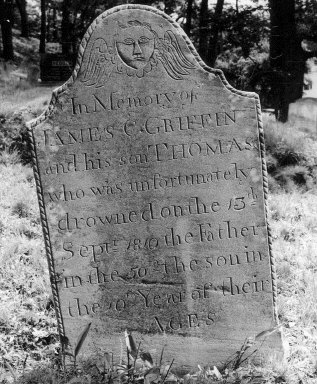 In Memory of
JAMES C. GRIFFIN
and his son THOMAS
who was unfortunately
drowned on the 13th
Septr. 1810 the Father
in the 50th the son in
the 20th Year of their
AGES